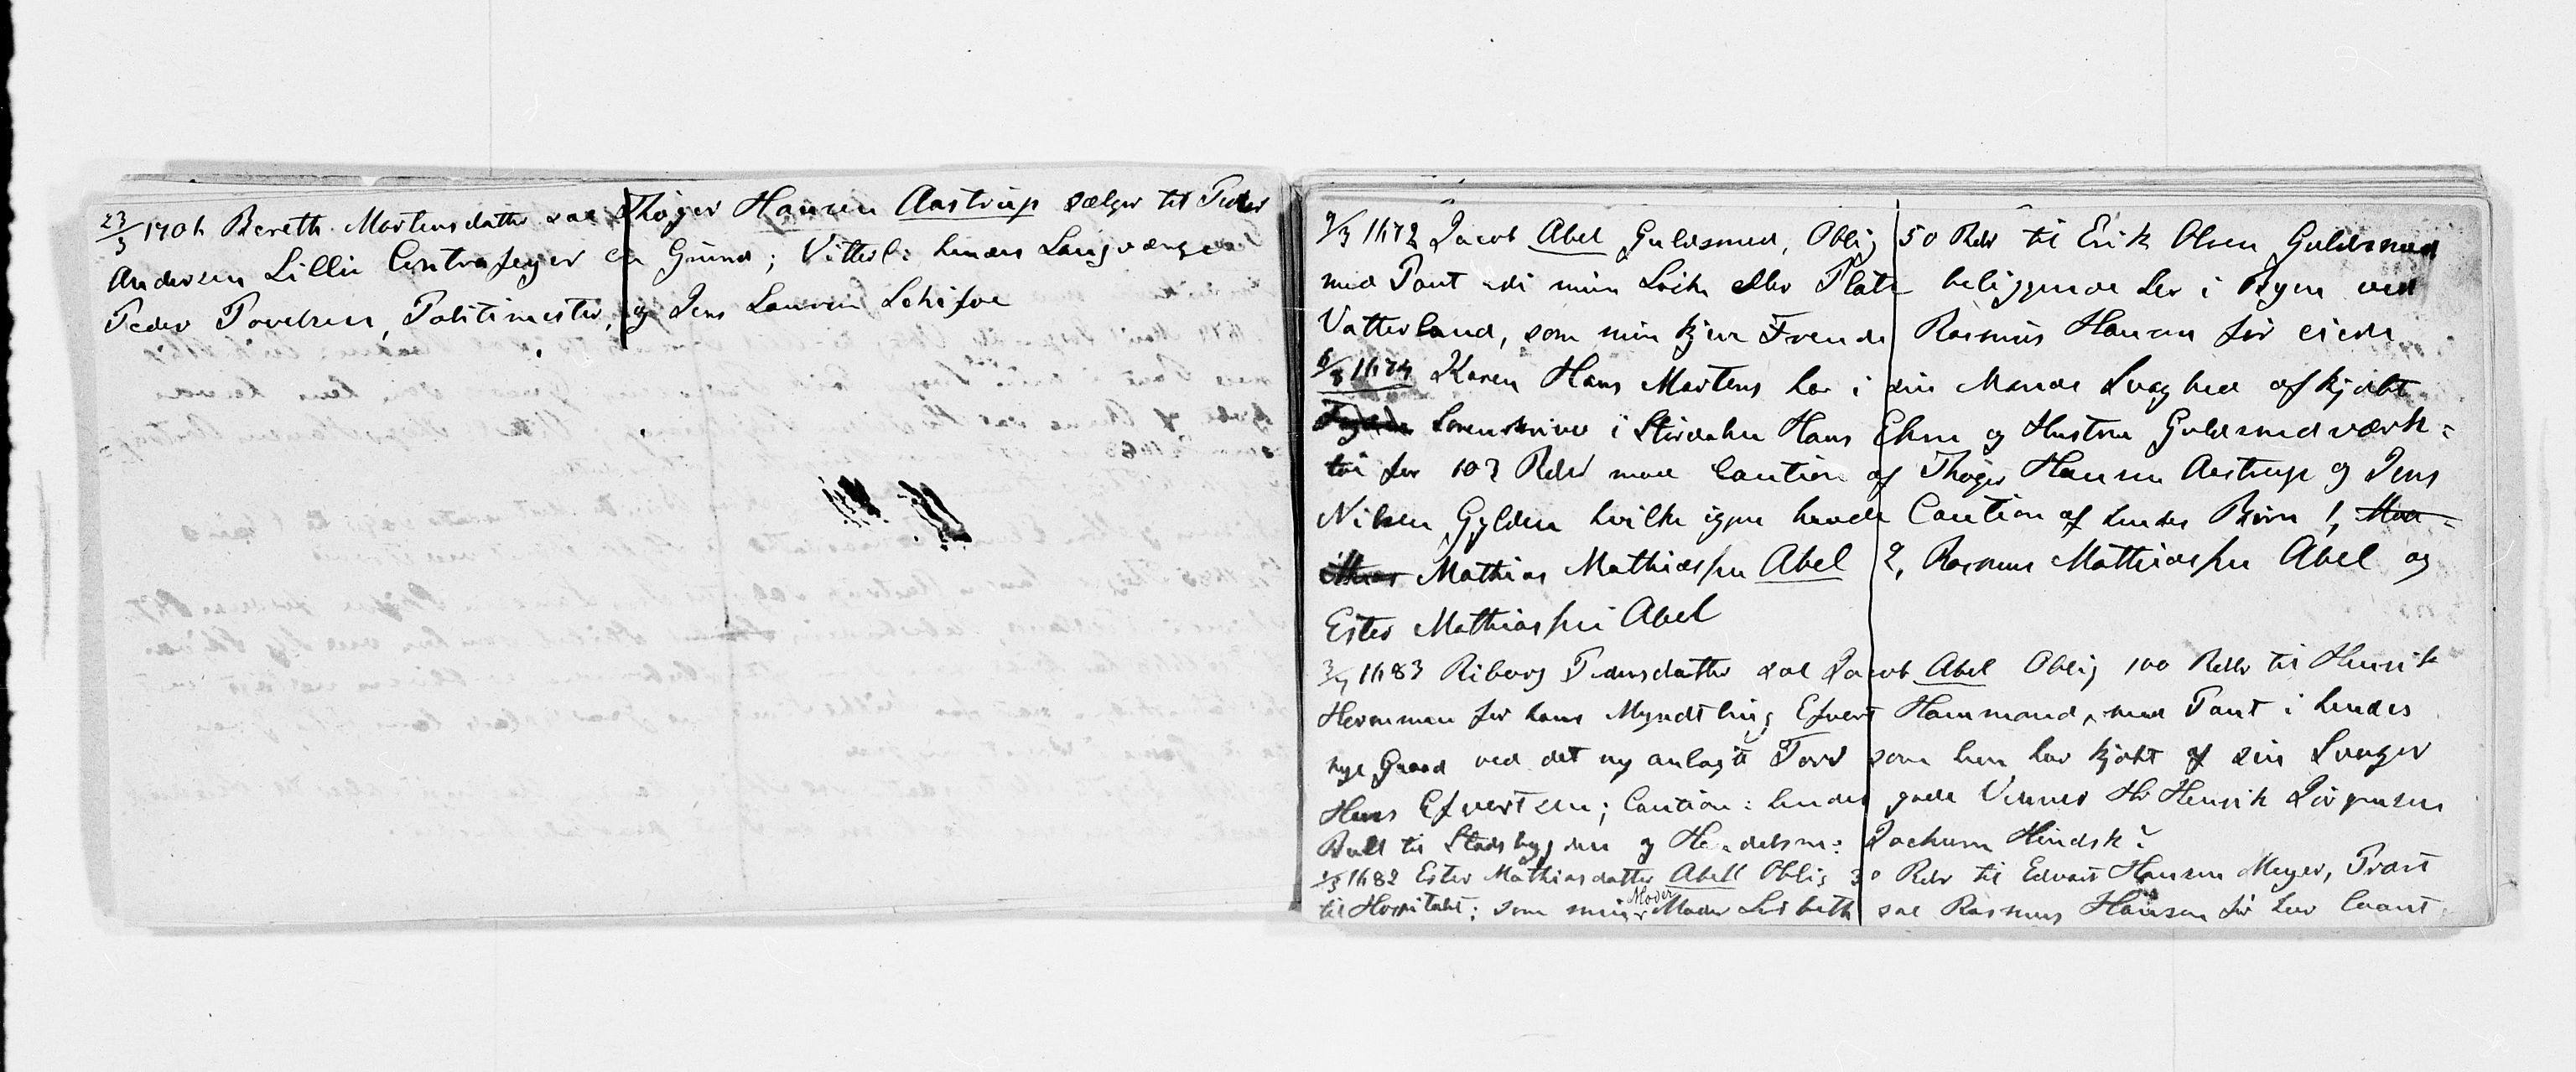 23/3 1706 Bereth Mortensdatter sal Thøger Hansen Aastrup sælger til Peder
Andersen Lillie Contrafeyer en Grund; Vitterl: hendes Laugværge
Peder Povelsen, Politimester, og Jens Laursen Schifve
9/3 1672 Jacob Abel Guldsmed, Oblig 50 Rdlr til Erik Olsen Guldsmed
med Pant udi min Løche eller Platz beliggende her i Byen ved
Vatterland, som min kjere Frende Rasmus Hansen før eiede
6/8 1674 Karen Hans Mortens har i sin Mands Svaghed afkjøbt
Sorenskriver i Størdalen Hans Ehm og Hustru Guldsmedværk=
tøi for 103 Rdlr mod Caution af Thøger Hansen Aastrup og Jens
Nilsen Gylden hvilke igjen havde Caution af hendes Børn 1,
Mathias Mathiassen Abel 2, Rasmus Mathiassen Abel og
Ester Mathiassen Abel
3/7 1683 Riborg Pedersdatter sal Jacob Abel Oblig 100 Rdlr til Henrik
Hornemann for hans Myndtling Efvert Hammond, med Pant i hendes
nye Gaard ved det ny anlagte Torv som hun har kjøbt af sin Svoger
Hans Efvertsen; Caution: hendes gode Venner Hr Henrik Jørgensen
Bull til Stadsbygden og Handelsm: Jochum Hindsk?
1/3 1682 Ester Mathiasdatter Abell Oblig 30 Rdlr til Edvart Hansen Meyer, Prost
til Hospitalet; som min Moder Lisbeth sal Rasmus Hansen før har laant